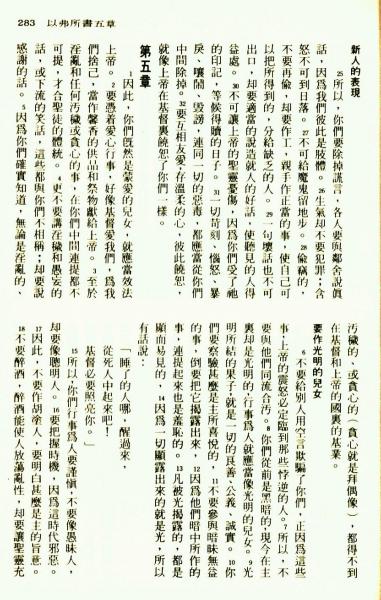 283　以弗所書五章
新人的表現
25所以，你們要除掉謊言，各人要與鄰舍說真
話，因爲我們彼此是肢體。26生氣却不要犯罪；含
怒不可到日落。27不可給魔鬼留地步。28偷竊的，
不要再偷，却要作工，親手作正當的事，使自己可
以把所得到的，分給缺乏的人。29一句壞話也不可
出口，却要適當的說造就人的好話，使聽見的人得
益處。30不可讓上帝的聖靈憂傷，因爲你們受了祂
的印記，等候得贖的日子。31一切苛刻、惱怒、暴
戾、嚷鬧、毁謗，連同一切的惡毒，都應當從你們
中間除掉。32要互相友愛，存温柔的心，彼此饒恕，
就像上帝在基督裏饒恕了你們一樣。
第五章
1因此，你們既然是蒙愛的兒女，就應當效法
上帝。2要憑着愛心行事，好像基督愛我們，爲我
們捨己，當作馨香的供品和祭物獻給上帝。3至於
淫亂和任何汚穢或貪心的事，在你們中間連提都不
可提，才合聖徒的體統。4更不要講汚穢和愚妄的
話，或下流的笑話，這些都與你們不相稱；却要說
感謝的話。5因爲你們確實知道，無論是淫亂的、
汚穢的、或貪心的（貪心就是拜偶像），都得不到
在基督和上帝的國裏的基業。
要作光明的兒女
6不要給別人用空言欺騙了你們，正因爲這些
事，上帝的震怒必定臨到那些悖逆的人。7所以，不
要與他們同流合汚。8你們從前是黑暗的，現今在主
裏却是光明的，行事爲人就應當像光明的兒女。9光
明所結的果子就是一切的良善、公義、誠實。10你
們要察驗甚麽是主所喜悦的，11不要參與暗昧無益
的事，倒要把它揭露出來，12因爲他們暗中所作的
事，連提起來也是羞恥的。13凡被光揭露的，都是
顯而易見的，14因爲一切顯露出來的就是光，所以
有話說：
「睡了的人哪，醒過來，
從死人中起來吧！
基督必要照亮你。」
15所以，你們行事爲人要謹愼，不要像愚昧人，
却要像聰明人。16要把握時機，因爲這時代邪惡。
17因此，不要作胡塗人，要明白甚麽是主的旨意。
18不要醉酒，醉酒能使人放蕩亂性，却要讓聖靈充